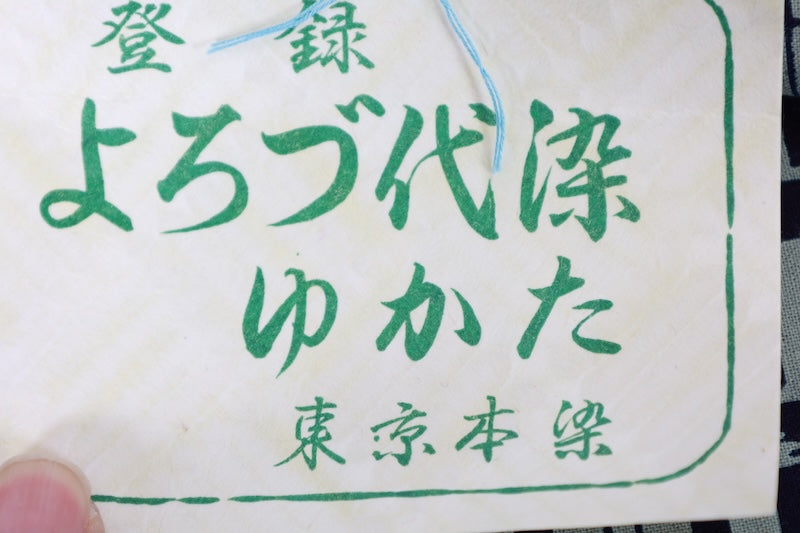 登録
よろづ代染
ゆかた
東京本染